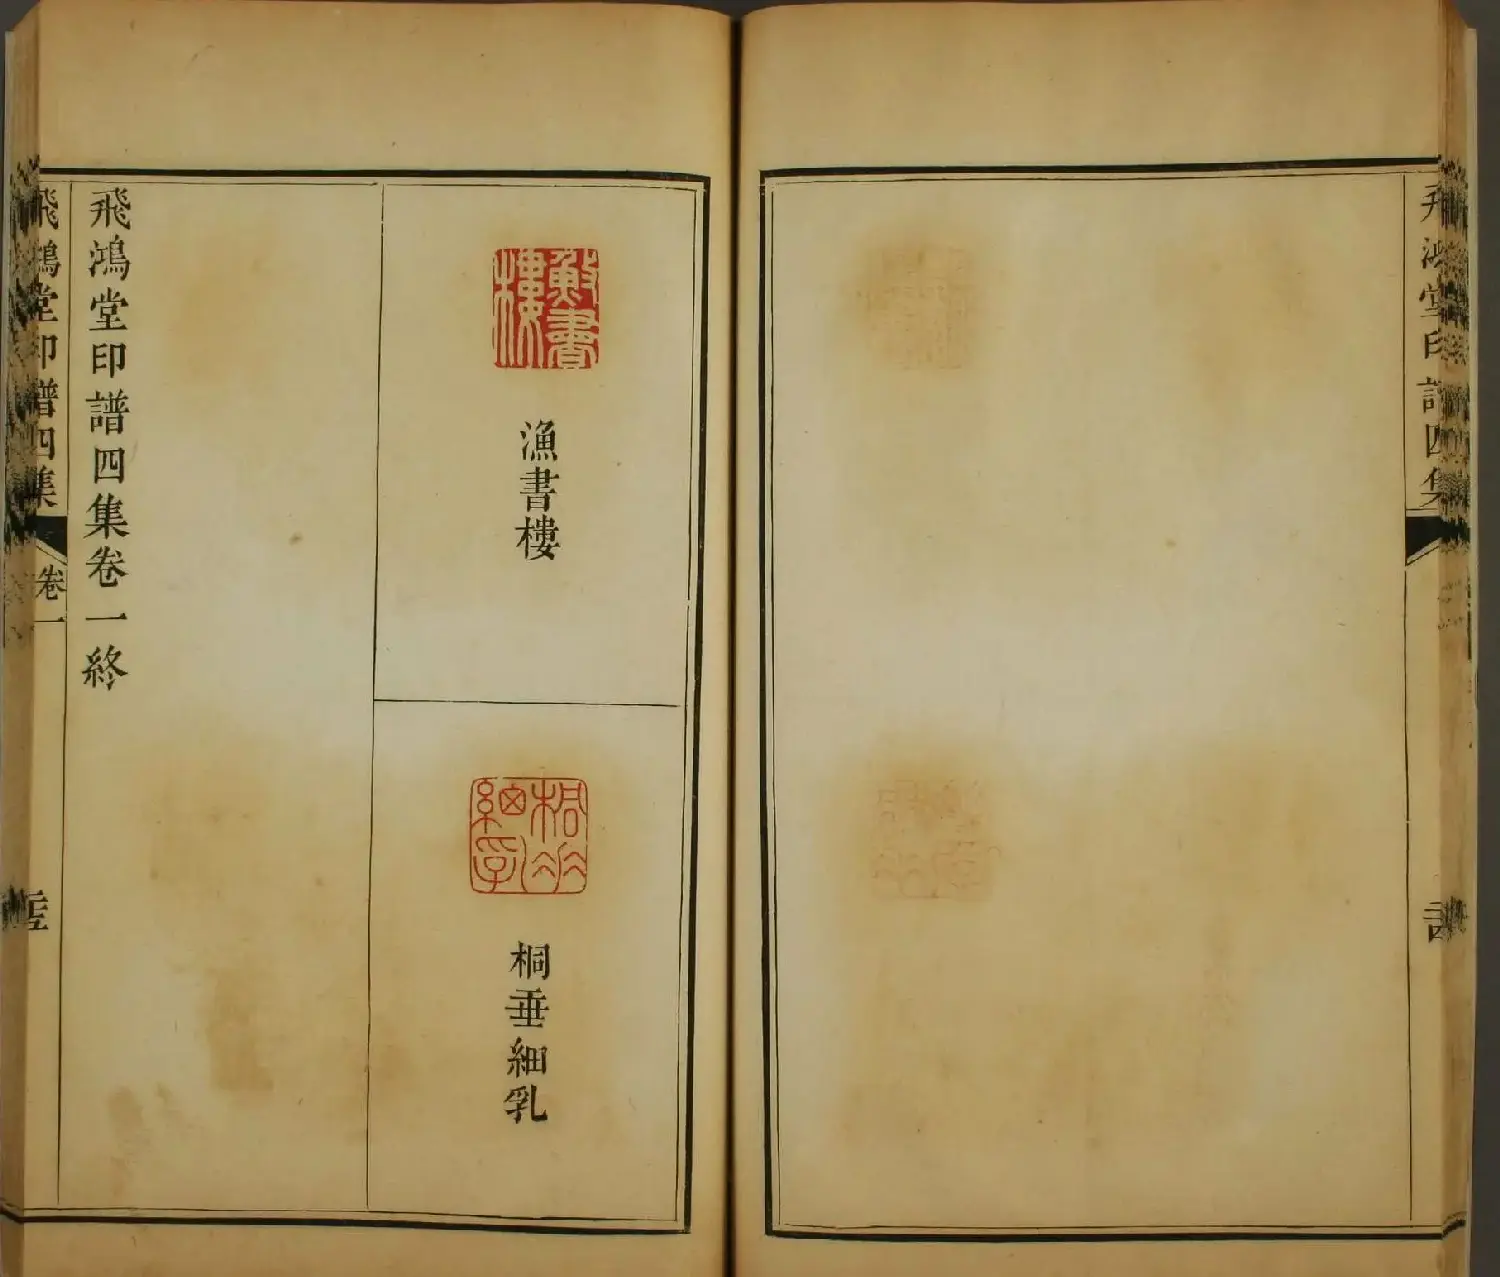 飛鴻堂印譜四集
𩵎書樓
漁書樓
桐垂細乳
桐垂細乳
飛鴻堂印譜四集卷一終
飛鴻堂印譜四集
卷一